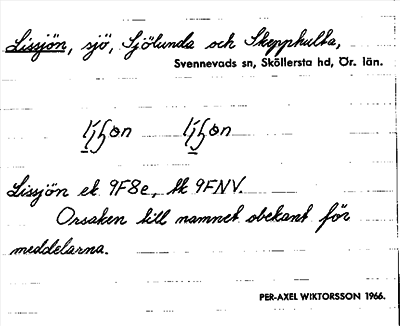 Lissjön, sjö, Sjölunda och Skepphulta,
Svennevads sn, Sköllersta hd, Ör. län.
Lissjön ek 9F8e, tk 9FNV.
Orsaken till namnet obekant för
meddelarna.
PER-AXEL WIKTORSSON 1966.